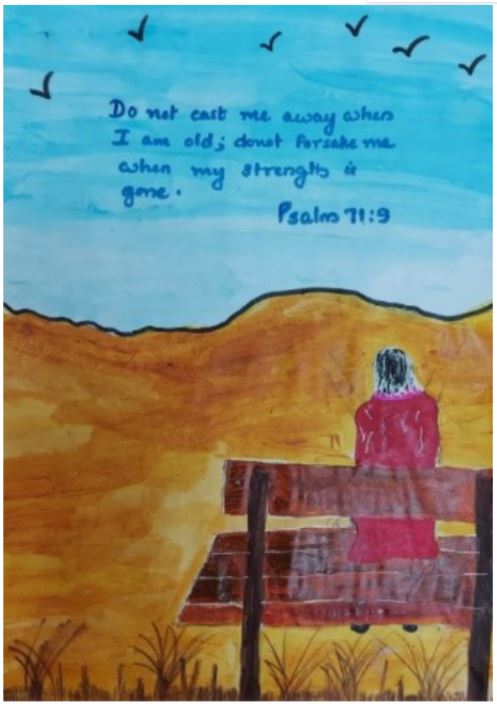 Do not cast me away when
I am old; donot forsake me
when my strength is
gone.
Psalm 71:9